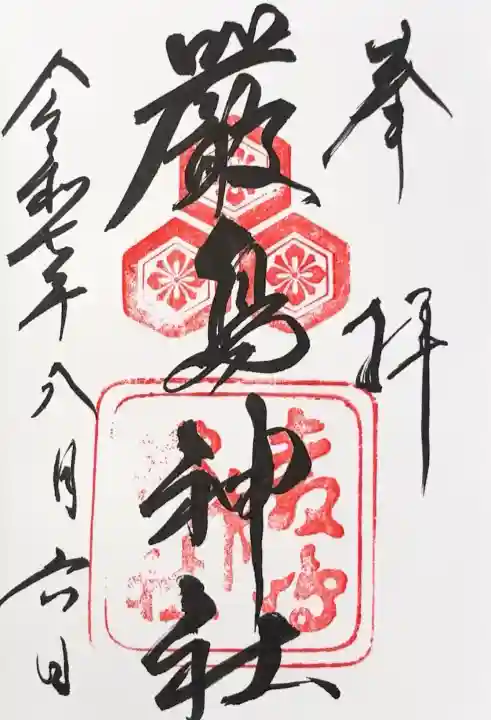 奉拝
厳島神社
令和七年八月六日